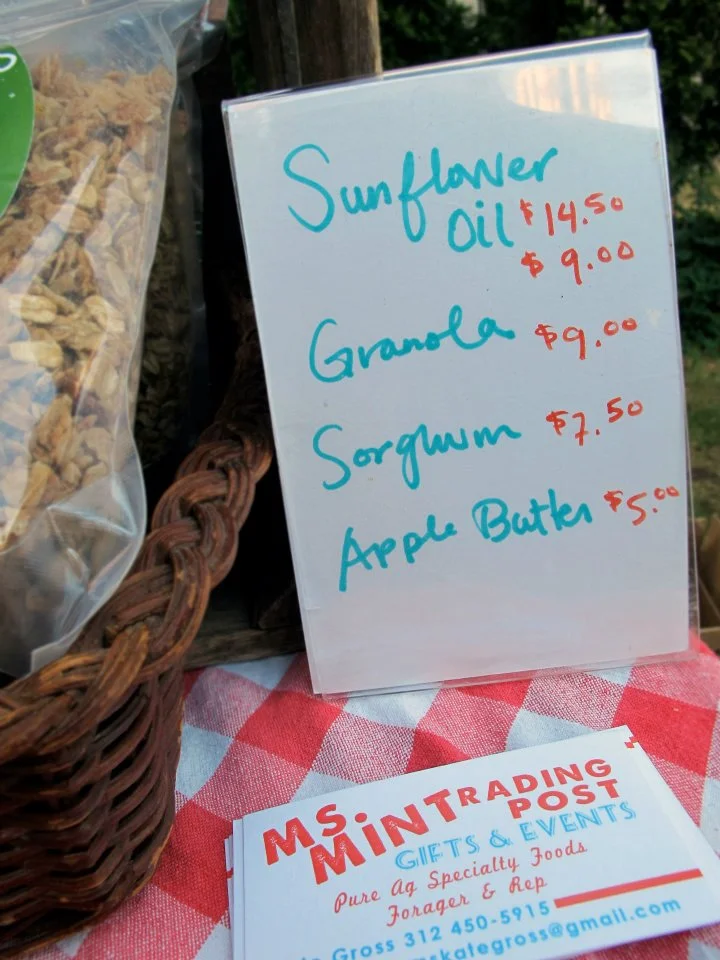 Sunflower
Oil $14.50
$9.00
Granola $9.00
Sorghum $7.50
Apple Butter $5.00
MS. MINT TRADING POST
GIFTS & EVENTS
Pure Ag Specialty Foods
Forager & Rep
Gross 312 450-5915
mskategross@gmail.com